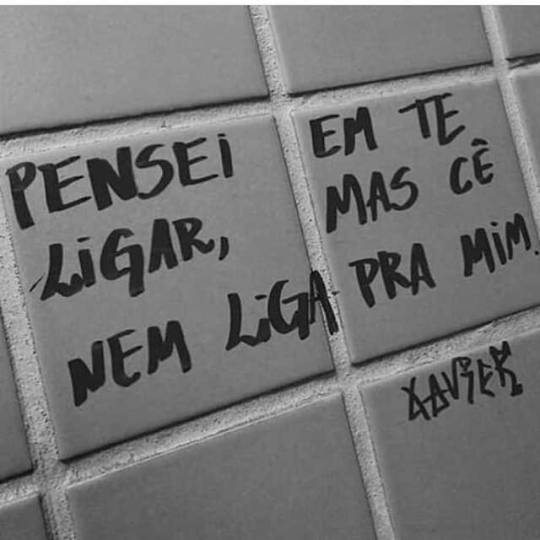 PENSEI EM TE
LIGAR, MAS CÊ
NEM LIGA PRA MIM.
XAVIER